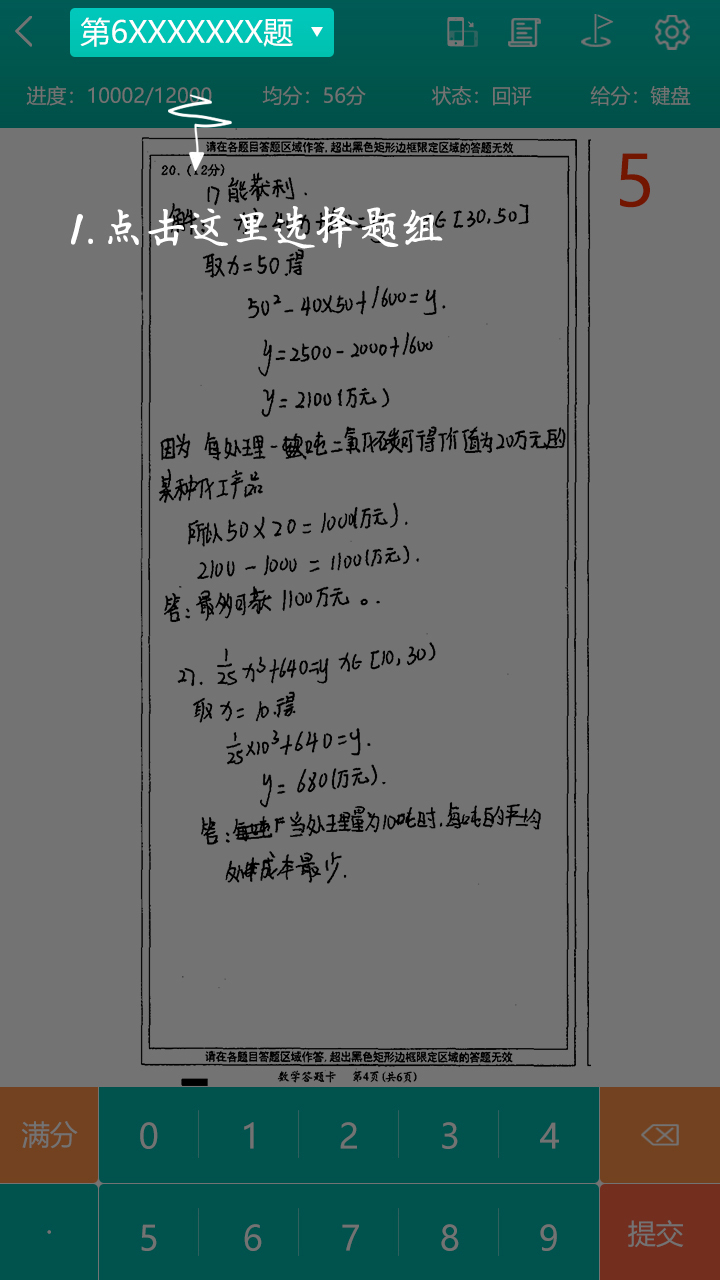 第6XXXXXXX题
进度：10002/12000 均分：56分 状态：回评 给分：键盘
请在各题目答题区域作答，超出黑色矩形边框限定区域的答题无效
5
20.（12分）
能获利.
1.点击这里选择题组
∈[30,50]
取x=50得
50²-40×50+1600=y.
y=2500-2000+1600
y=2100(万元)
因为 每处理一吨二氧化碳可得价值为20万元的
某种化工产品
所以50×20=1000(万元).
2100-1000=1100(万元).
答:最多可获1100万元。.
27. 1/25x³+640=y x∈[10,30)
取x=10.得
1/25×10³+640=y.
y=680(万元).
答: 当处理量为10吨时,每吨的平均
成本最少.
请在各题目答题区域作答，超出黑色矩形边框限定区域的答题无效
数学答题卡 第4页(共6页)
满分 0 1 2 3 4
· 5 6 7 8 9 提交